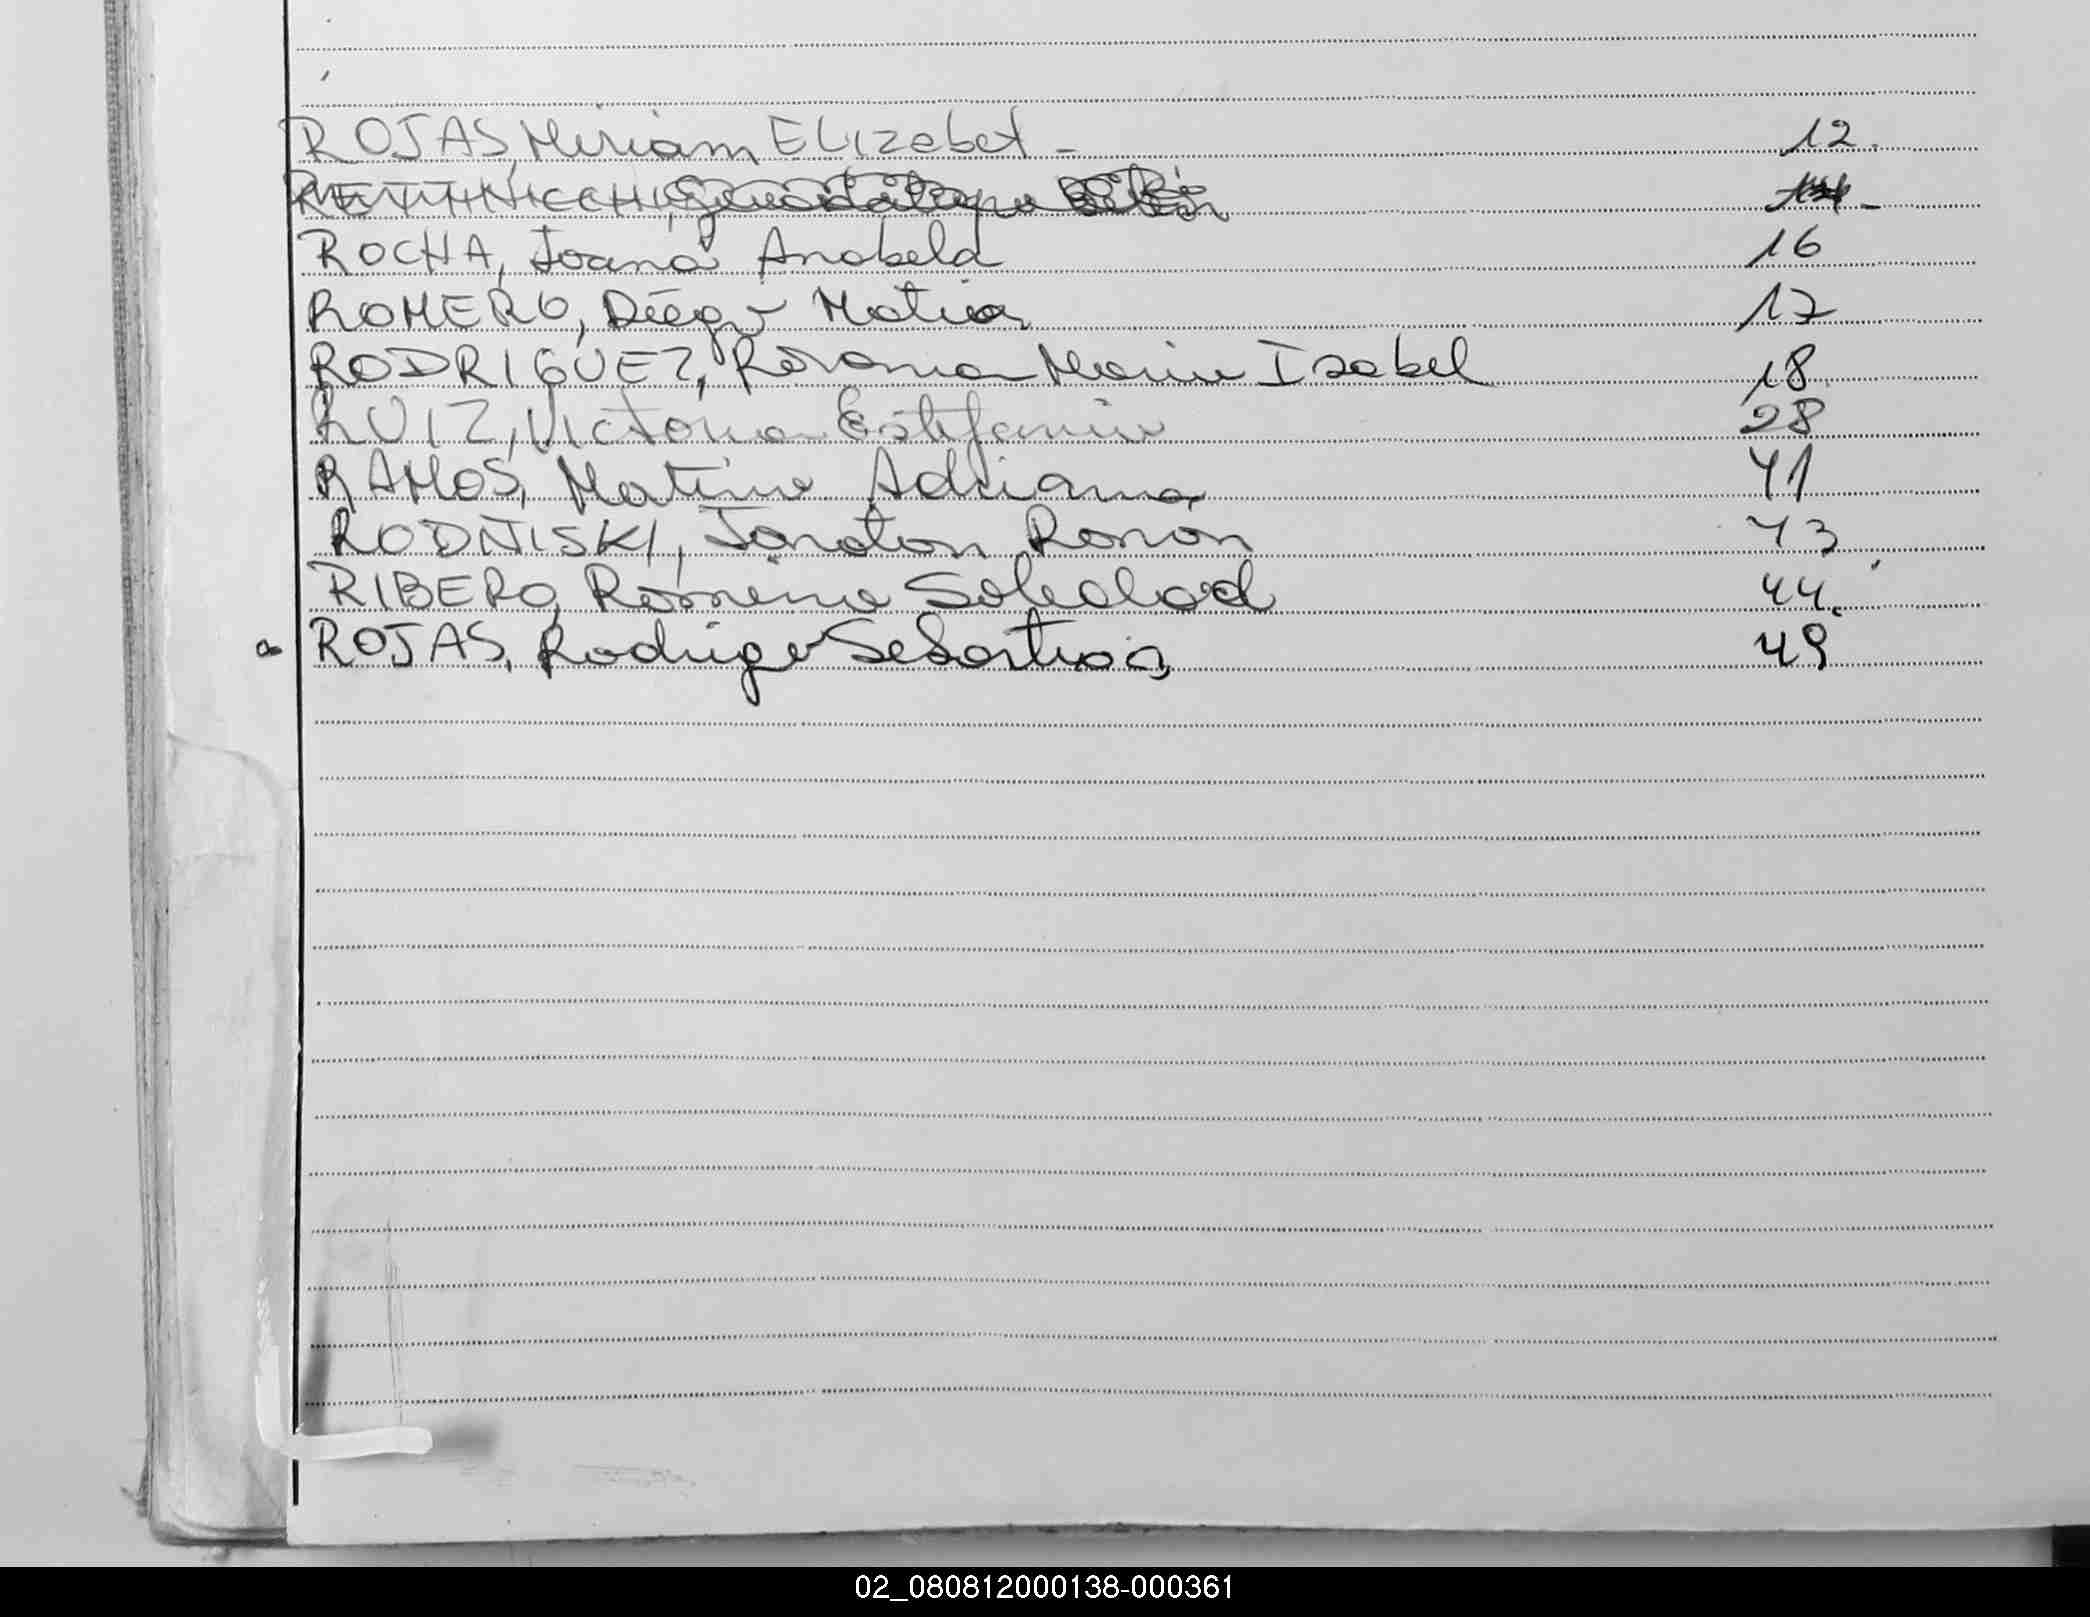 ROJAS, Miriam ELIzabet - 12.
ROCHA, Joana Anabela 16
ROMERO, Diego Matias 17
RODRIGUEZ, Rosana Maria Isabel 18
RUIZ, Victoria Estefania 28
RAMOS, Matina Adriana 41
RODÑISKI, Jonaton Ramon 43
RIBERO, Romina Soledad 44.
ROJAS, Rodrigo Sebastian 49
02_080812000138-000361